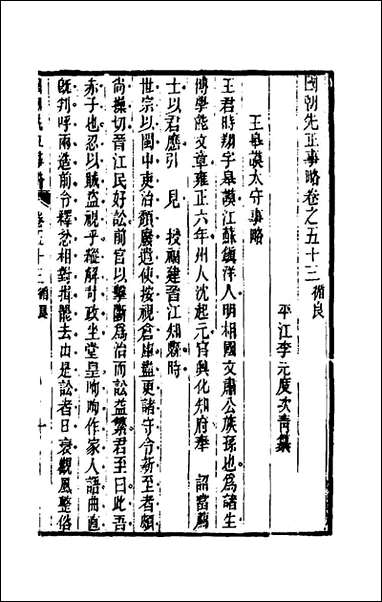 國朝先正事略卷之五十三 循良
平江李元度次青纂
王皋謨太守事略
王君時翔字皋謨江蘇鎮洋人明相國文肅公族孫也爲諸生
博學能文章雍正六年州人沈起元官興化知府奉 詔密薦
士以君應引 見 授福建晉江知縣時
世宗以閩中吏治頹廢遣使按視倉庫盡更諸守令新至者頗
尚操切晉江民好訟前官以擊斷爲治而訟益繁君至曰此吾
赤子也忍以賊盜視乎縱解苛政坐堂皇呴呴作家人語曲直
旣判呼兩造前令釋忿相對揖罷去由是訟者日衰觀風整俗
卷五十三 循良